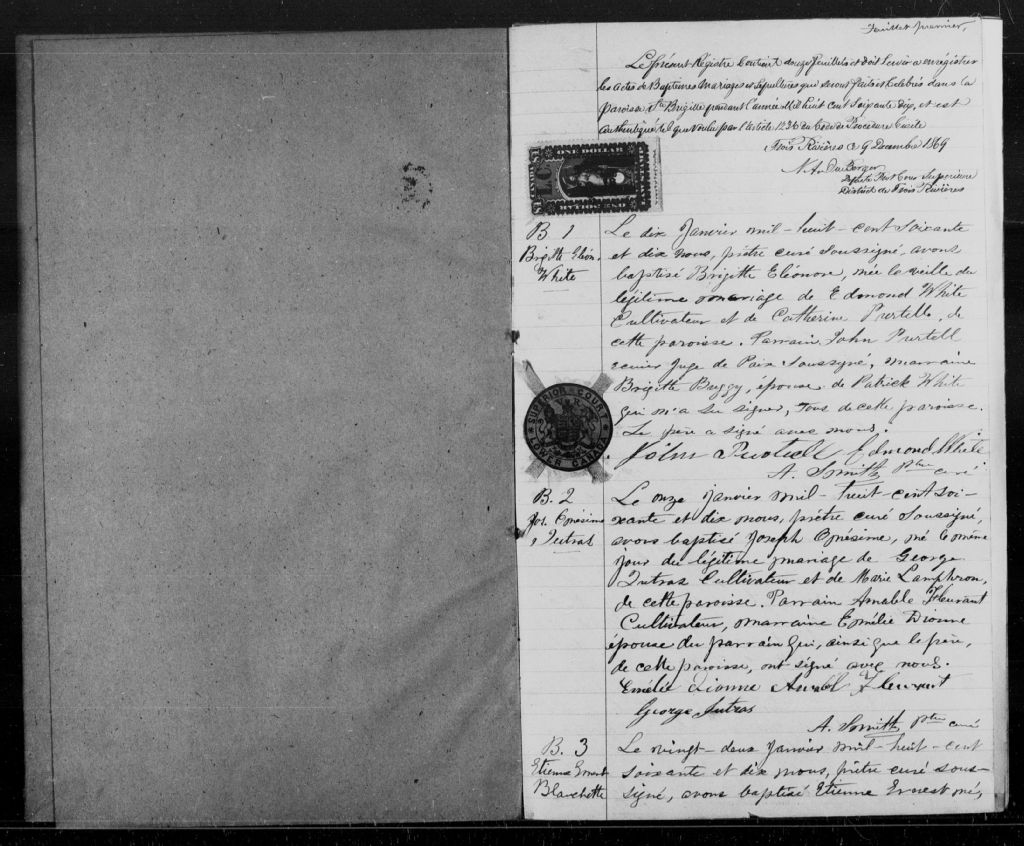 Feuillet premier,
Le présent Régistre Contient douze feuillets et doit Servir a enrégistrer
les actes de Baptêmes Mariages et Sépultures qui seront faits et Célébrés dans la
paroisse Ste Brigitte pendant l'année Mil huit Cent Soixante dix, et est
authentiqué tel que voulu par l'article 1236 du Code de Procédure Civile
Trois Rivières ce 9 Decembre 1869
Député Prot Cour Supérieure
District de Trois Rivières
ONE DOLLAR
ONE DOLLAR
B. 1
Brigitte Eléon.
White
Le dix Janvier mil-huit-cent soixante
et dix nous, prêtre curé soussigné, avons
baptisé Brigitte Eléonore, née la veille du
légitime mariage de Edmond White
Cultivateur et de Catherine Purtell, de
cette paroisse. Parrain John Purtell
Juge de Paix soussigné, marraine
Brigitte Buggy, épouse de Patrick White
qui n'a su signer, tous de cette paroisse.
Le père a signé avec nous.
John Purtell Edmond White
A. Smith Ptre curé
SUPERIOR COURT
LOWER CANADA
B. 2
Jos. Onésime
Jutras
Le onze janvier mil-huit-cent soi-
xante et dix nous, prêtre curé soussigné,
avons baptisé Joseph Onésime, né le même
jour du légitime mariage de George
Jutras Cultivateur et de Marie Lamphron,
de cette paroisse. Parrain Amable Fleurant
Cultivateur, marraine Emélie Dionne
épouse du parrain qui, ainsi que le père,
de cette paroisse, ont signé avec nous.
Emélie Dionne Amabl Fleurant
George Jutras
A. Smith Ptre curé
B. 3
Etienne Ernest
Blanchette
Le vingt-deux Janvier mil-huit-cent
soixante et dix nous, prêtre curé sous-
signé, avons baptisé Etienne Ernest né,